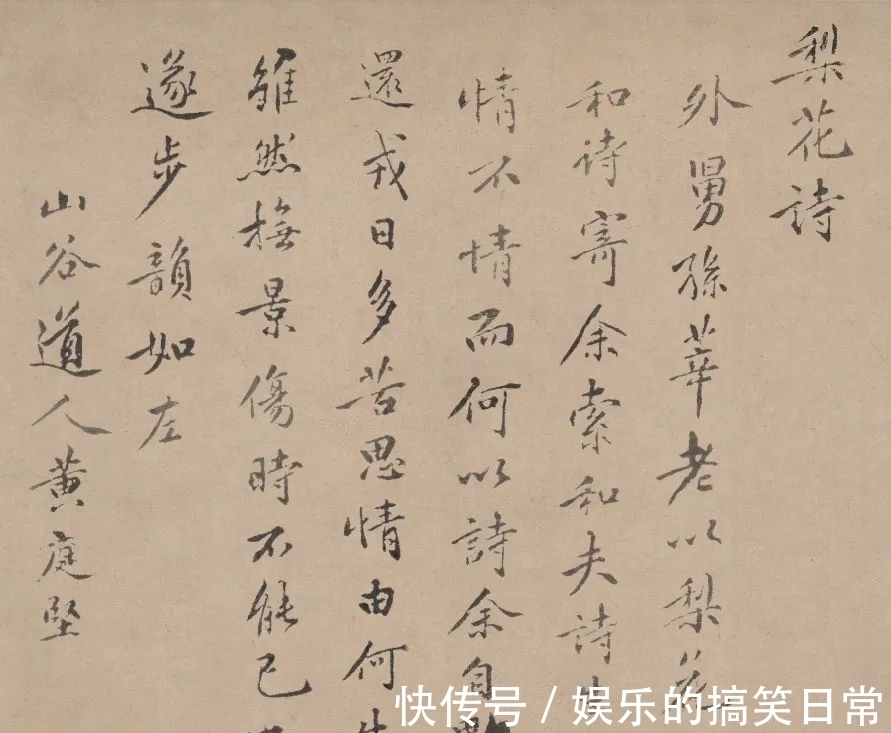 梨花詩
外舅孫莘老以梨花
和诗寄余索和夫詩
情不情而何以詩余自
還戎日多苦思情由何
雖然撫景傷時不能已
遂步韻如左
山谷道人黄庭堅
快传号 / 娱乐的搞笑日常